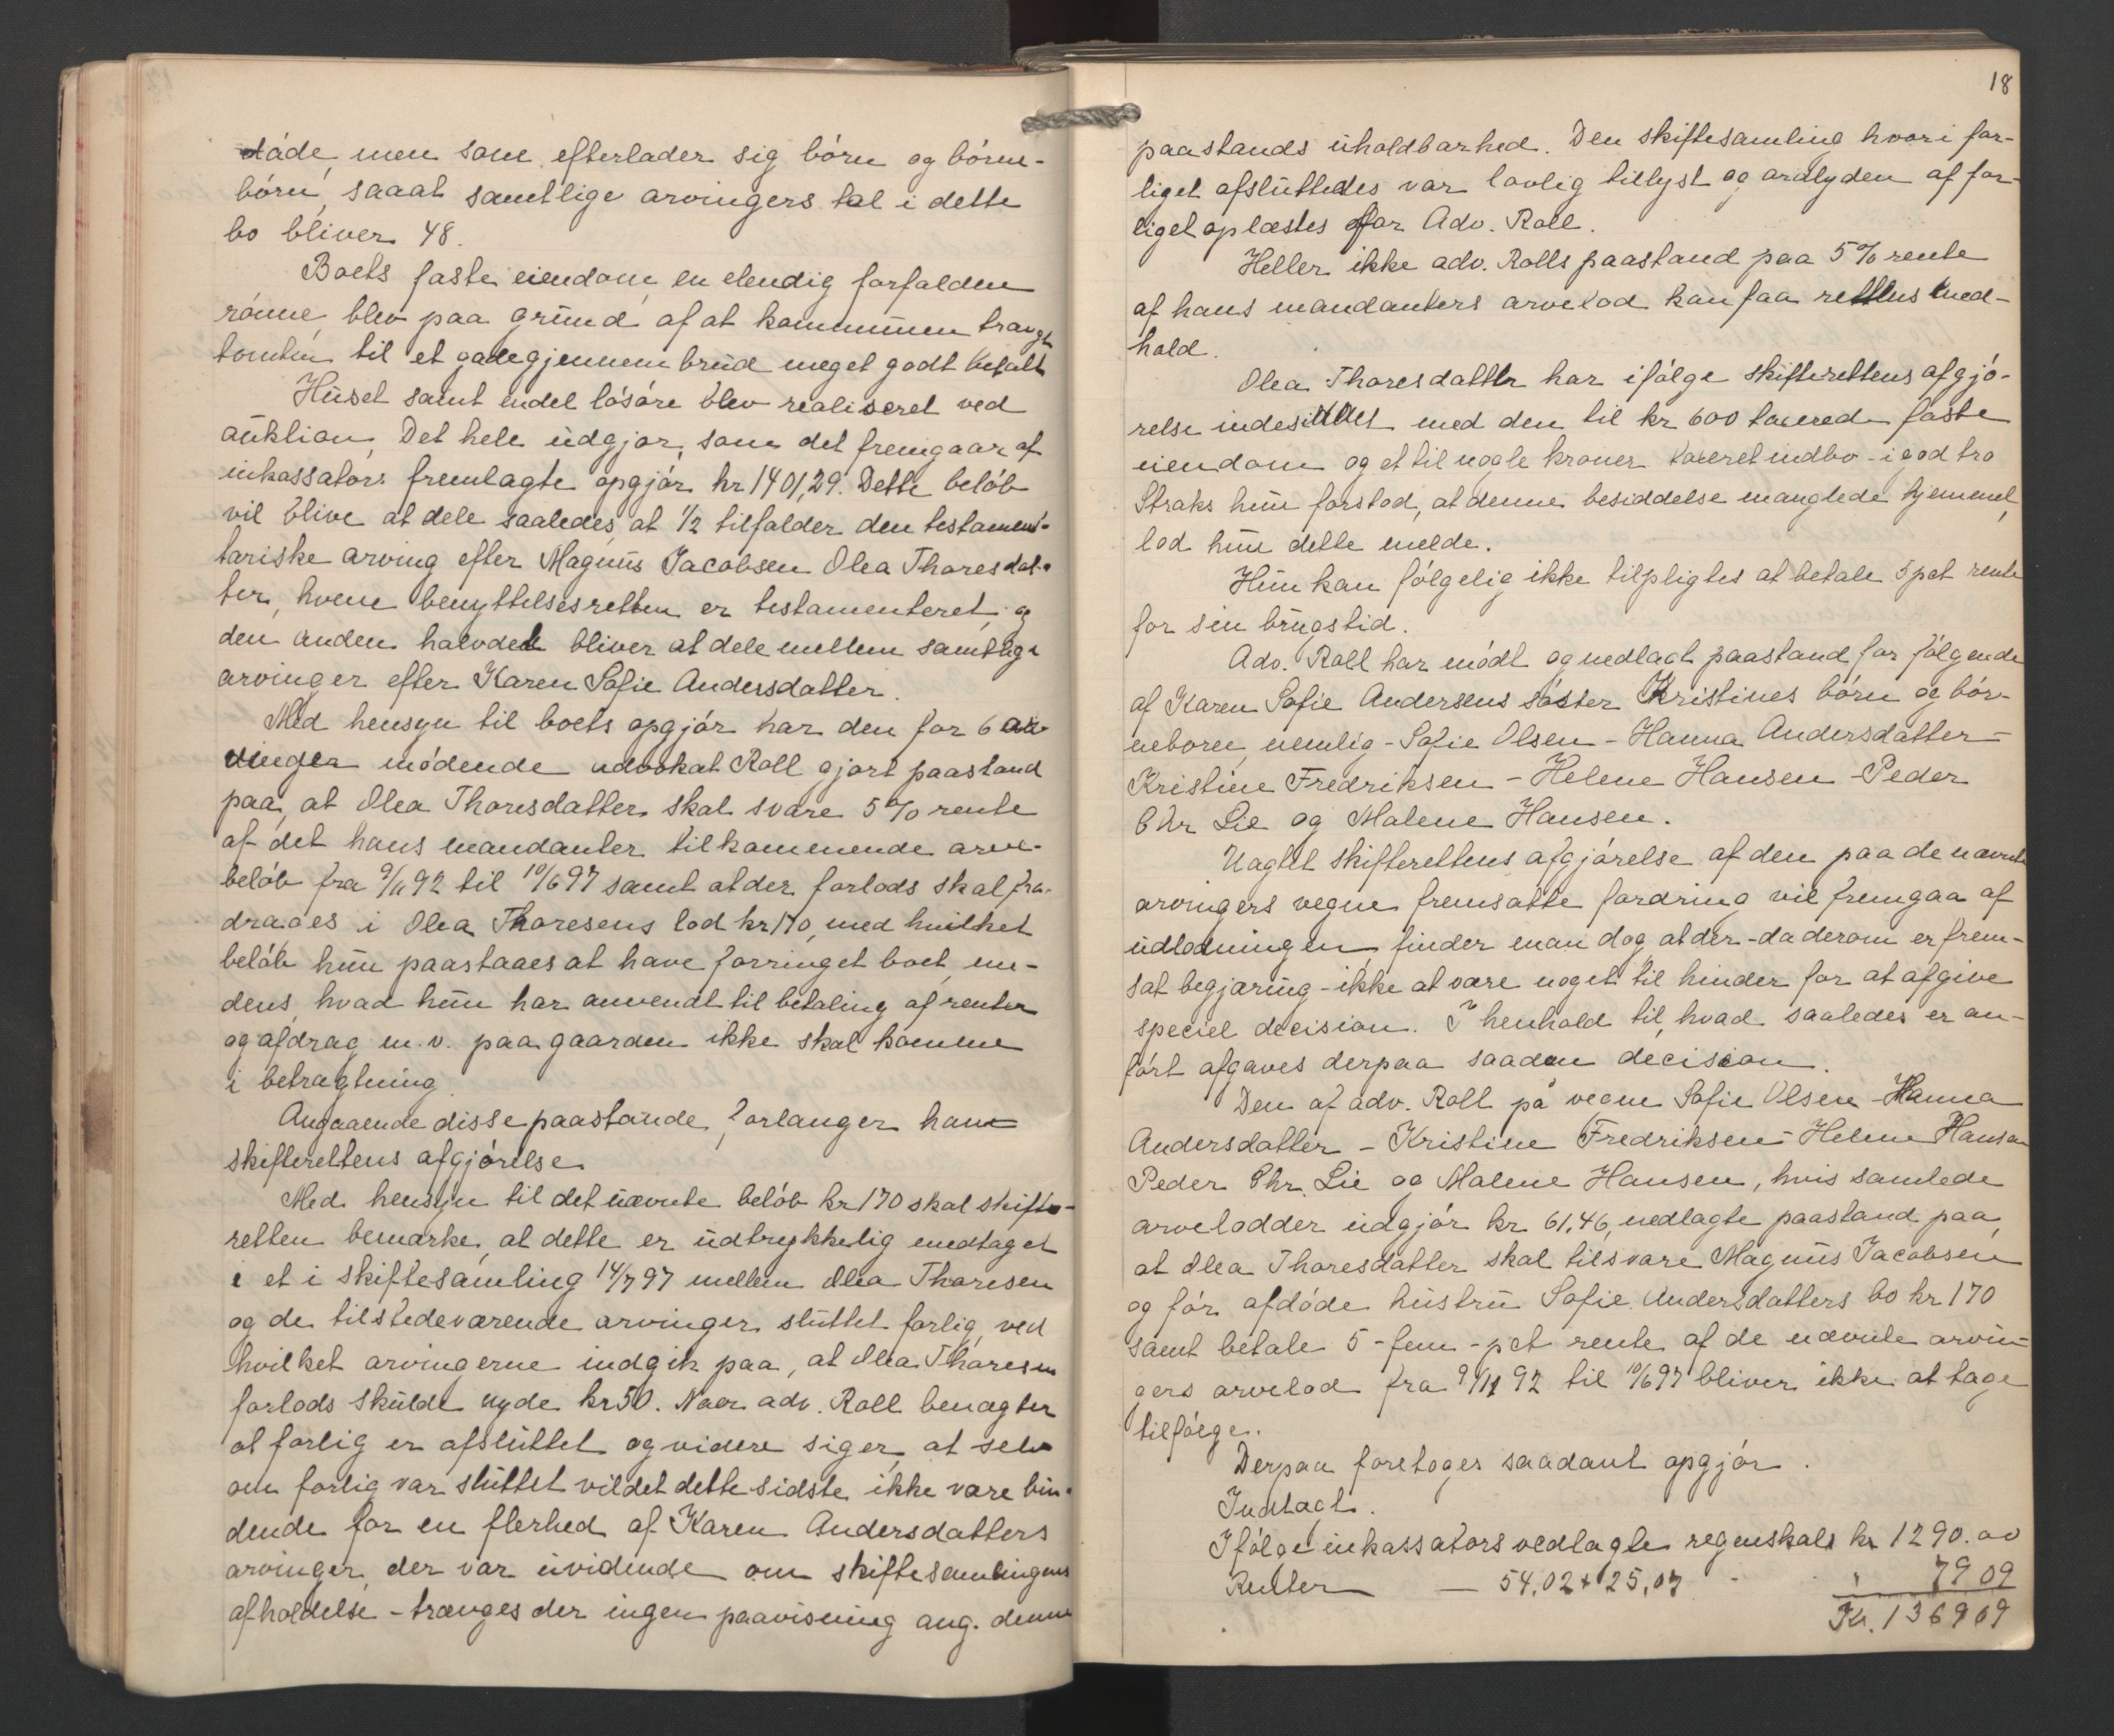 døde, men som efterlader sig børn og børne-
børn, saaat samtlige arvingers tal i dette
bo bliver 48.
Boets faste eiendom, en elendig forfalden
rønne, blev paa grund af at kommunen trængte
tomten til et gadegjennembrud meget godt betalt
Huset samt endel løsøre blev realiseret ved
auktion. Det hele udgjør, som det fremgaar af
inkassators fremlagte opgjør kr 1401,29. Dette beløb
vil blive at dele saaledes, at 1/2 tilfalder den testamen-
tariske arving efter Magnus Jacobsen Olea Thoresdat-
ter, hvem benyttelsesretten er testamenteret, og
den anden halvdel bliver at dele mellem samtlige
arvinger efter Karen Sofie Andersdatter.
Med hensyn til boets opgjør har den for 6 ar-
vinger mødende advokat Roll gjort paastand
paa, at Olea Thoresdatter skal svare 5 % rente
af det hans mandanter tilkommende arve-
beløb fra 9/11 92 til 10/6 97 samt at der forlods skal fra-
drages i Olea Thoresens lod kr 170, med hvilket
beløb hun paastaaes at have forringet boet, me-
dens, hvad hun har anvendt til betaling af renter
og afdrag m.v. paa gaarden ikke skal komme
i betragtning.
Angaaende disse paastande forlanger han
skifterettens afgjørelse.
Med hensyn til det nævnte beløb kr 170 skal skifte-
retten bemærke, at dette er udtrykkelig medtaget
i et i skiftesamling 14/7 97 mellem Olea Thoresen
og de tilstedeværende arvinger sluttet forlig, ved
hvilket arvingerne indgik paa, at Olea Thoresen
forlods skulde nyde kr 50. Naar adv. Roll benægter
at forlig er afsluttet og videre siger, at selv
om forlig var sluttet vildet dette sidste ikke være bin-
dende for en flerhed af Karen Andersdatters
arvinger, der var uvidende om skiftesamlingens
afholdelse - trænges der ingen paavisning ang. denne
18
paastands uholdbarhed. Den skiftesamling hvori for-
liget afsluttedes var lovlig tillyst og ordlyden af for-
liget oplæstes for Adv. Roll.
Heller ikke adv. Rolls paastand paa 5 % rente
af hans mandanters arvelod kan faa rettens med-
hold.
Olea Thoresdatter har ifølge skifterettens afgjø-
relse indesiddet med den til kr 600 taxerede faste
eiendom og et til nogle kroner taxeret indbo - i god tro
Straks hun forstod, at denne besiddelse manglede hjemmel,
lod hun dette melde.
Hun kan følgelig ikke tilpligtes at betale 5 pct rente
for sin brugstid.
Adv. Roll har mødt og nedlagt paastand for følgende
af Karen Sofie Andersens søster Kristines børn og bør-
neborn, nemlig - Sofie Olsen - Hanna Andersdatter -
Kristine Fredriksen - Helene Hansen - Peder
Chr Lie og Malene Hansen.
Uagtet skifterettens afgjørelse af den paa de nævnte
arvingers vegne fremsatte fordring vil fremgaa af
udlodningen, finder man dog, at der - da derom er frem-
sat begjæring - ikke at være noget til hinder for at afgive
speciel decision. I henhold til, hvad saaledes er an-
ført afgaves derpaa saadan decision.
Den af adv. Roll på vegne Sofie Olsen - Hanna
Andersdatter - Kristine Fredriksen - Helene Hansen
Peder Chr. Lie og Malene Hansen, hvis samlede
arvelodder udgjør kr. 61,46, nedlagte paastand paa,
at Olea Thoresdatter skal tilsvare Magnus Jacobsen
og før afdøde hustru Sofie Andersdatters bo kr. 170
samt betale 5 - fem - pct rente af de nævnte arvin-
gers arvelod fra 9/11 92 til 10/6 97 bliver ikke at tage
tilfølge.
Derpaa foretoges saadant opgjør.
Indtægt.
Ifølge inkassators vedlagte regenskab kr 1290.00
Renter — 54,02 + 25,07 - " 79 09
Kr. 1369 09